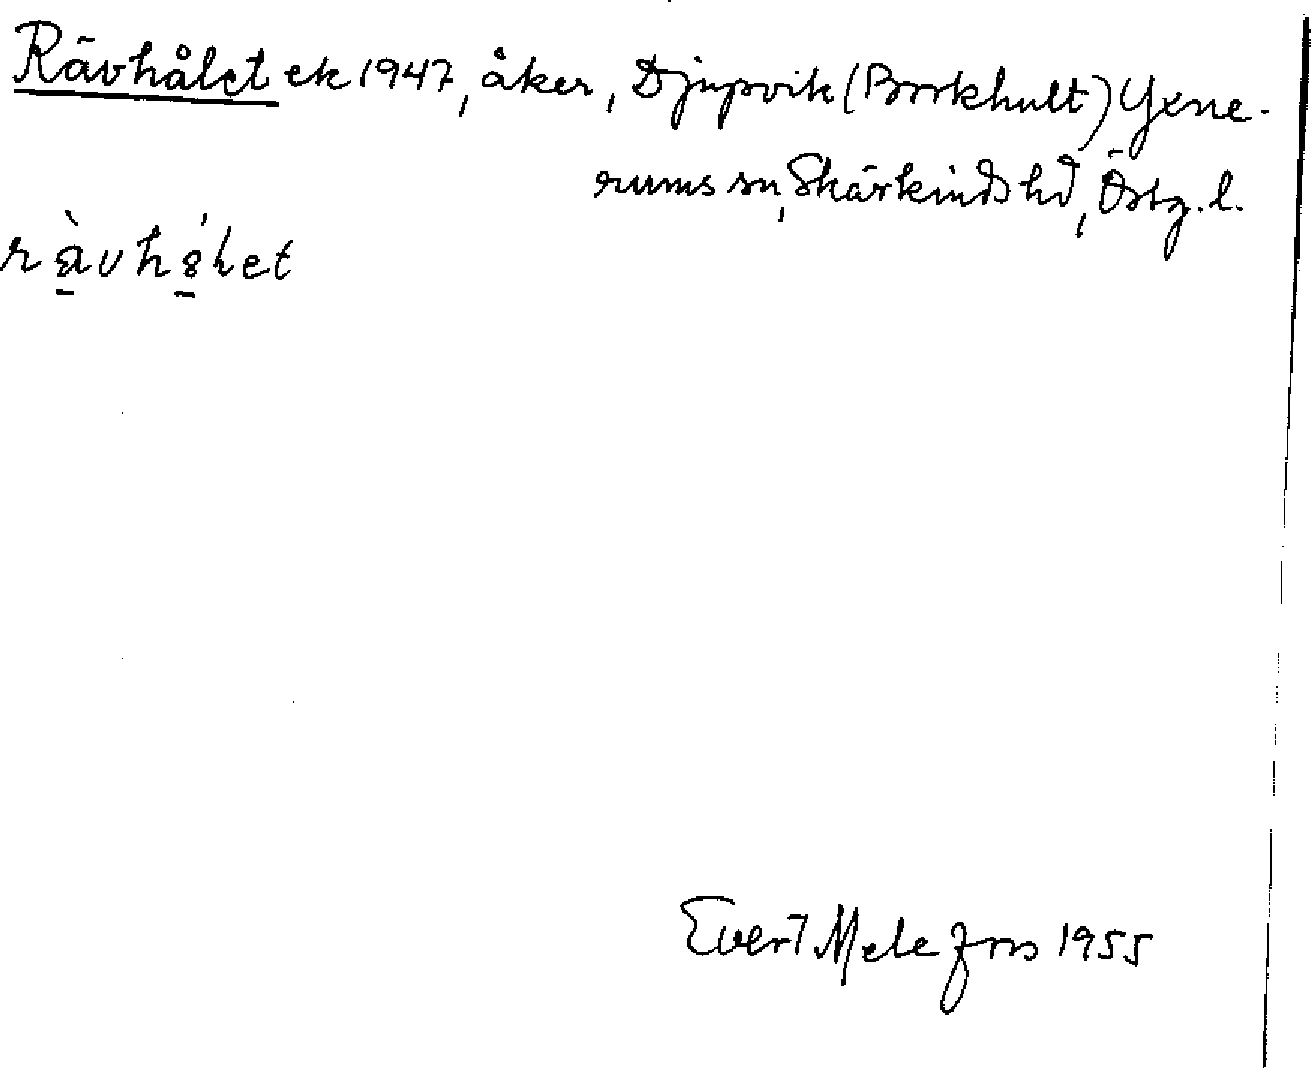 Rävhålet ek 1947, åker, Djupvik (Borkhult) Yxne-
rums sn, Skärkinds hd, Östg. l.
Evert Melefors 1955